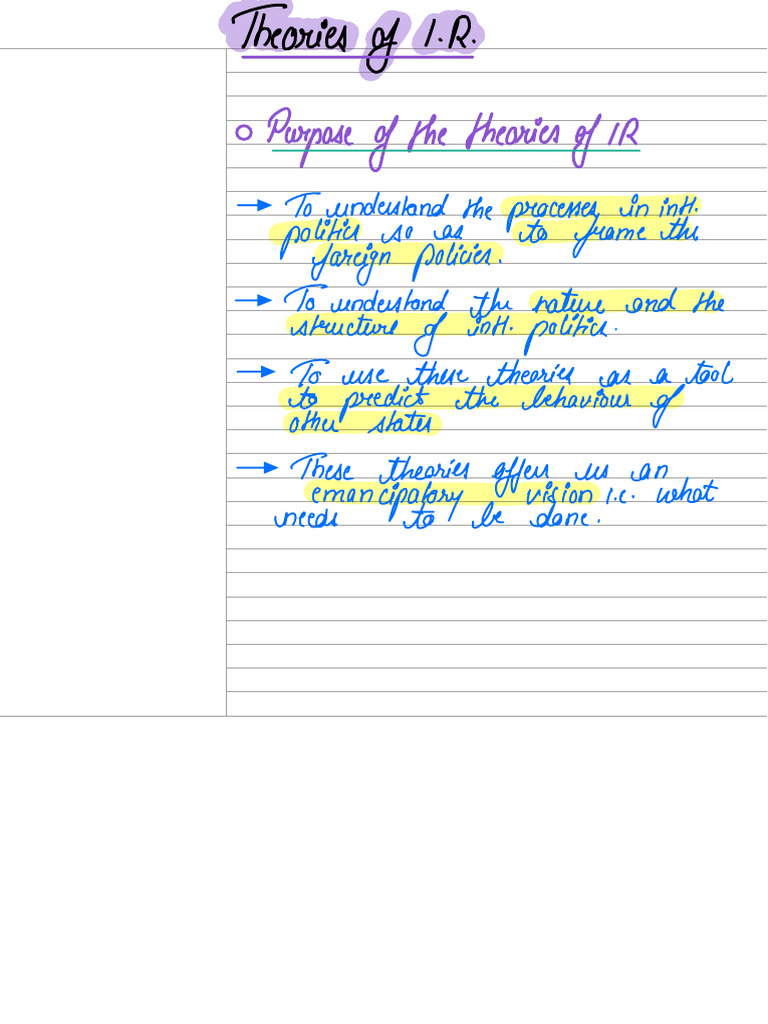 Theories of I.R.
○ Purpose of the theories of IR
→ To understand the processes in intl.
politics so as to frame the
foreign policies.
→ To understand the nature and the
structure of intl. politics.
→ To use these theories as a tool
to predict the behaviour of
other states
→ These theories offers us an
emancipatory vision i.e. what
needs to be done.